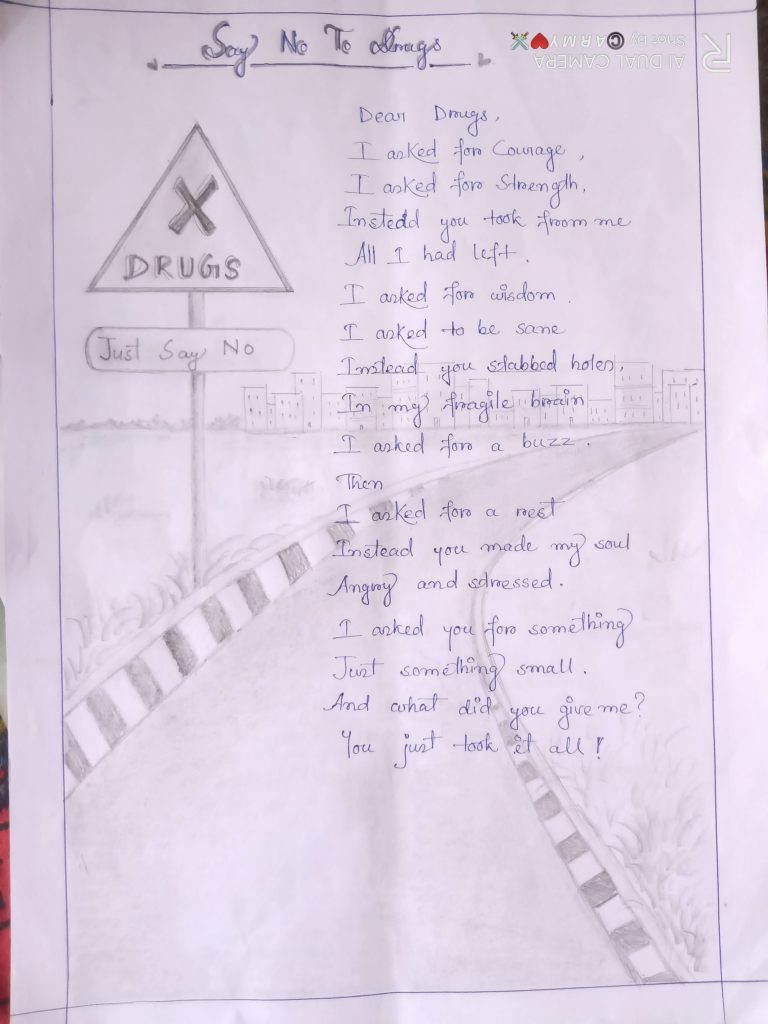 Say No To Drugs
AI DUAL CAMERA
Shot by ©ARMY❤️⚔️
DRUGS
Just Say No
Dear Drugs,
I asked for Courage,
I asked for Strength,
Instead you took from me
All I had left.
I asked for wisdom.
I asked to be sane
Instead you stabbed holes,
In my fragile brain
I asked for a buzz.
Then
I asked for a rest
Instead you made my soul
Angry and stressed.
I asked you for something
Just something small.
And what did you give me?
You just took it all!